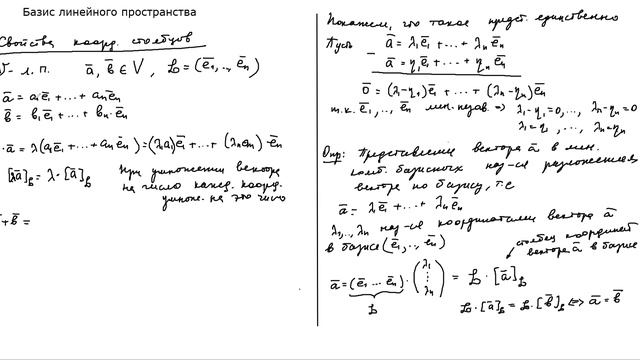 Базис линейного пространства
Свойства коорд. столбцов
V - л. п. a̅, b̅ ∈ V, 𝓑 = (e̅₁, .., e̅ₙ)
a̅ = a₁e̅₁ + ... + aₙe̅ₙ
b̅ = b₁e̅₁ + ... + bₙ·e̅ₙ
·a̅ = λ(a₁e̅₁ + ... + aₙe̅ₙ) = (λa₁)e̅₁ + ... + (λaₙ)·e̅ₙ
[λa̅]_𝓑 = λ·[a̅]_𝓑 При умножении вектора
на число кажд. коорд.
умнож. на это число
+ b̅ =
Покажем, что такое предст. единственно
Пусть a̅ = λ₁e̅₁ + ... + λₙe̅ₙ
- a̅ = η₁e̅₁ + ... + ηₙe̅ₙ
0̅ = (λ₁-η₁)e̅₁ + ... + (λₙ-ηₙ)e̅ₙ
т.к. e̅₁, .., e̅ₙ лин. незав. ⇒ λ₁-η₁=0, ..., λₙ-ηₙ=0
λ₁=η₁, ..., λₙ=ηₙ
Опр: Представление вектора a̅ в лин.
комб. базисных наз-ся разложением
вектора по базису, т.е
a̅ = λ₁e̅₁ + ... + λₙe̅ₙ
λ₁, .., λₙ наз-ся координатами вектора a̅
в базисе (e̅₁, .., e̅ₙ)
столбец координат
вектора a̅ в базисе
a̅ = (e̅₁ ... e̅ₙ)·(λ₁ ⋮ λₙ) = 𝓑·[a̅]_𝓑
𝓑
𝓑·[a̅]_𝓑 = 𝓑·[b̅]_𝓑 ⟺ a̅ = b̅